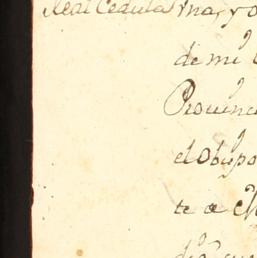 Real Cedula Yna, yo
de mi
Provinc
el obispo
te a